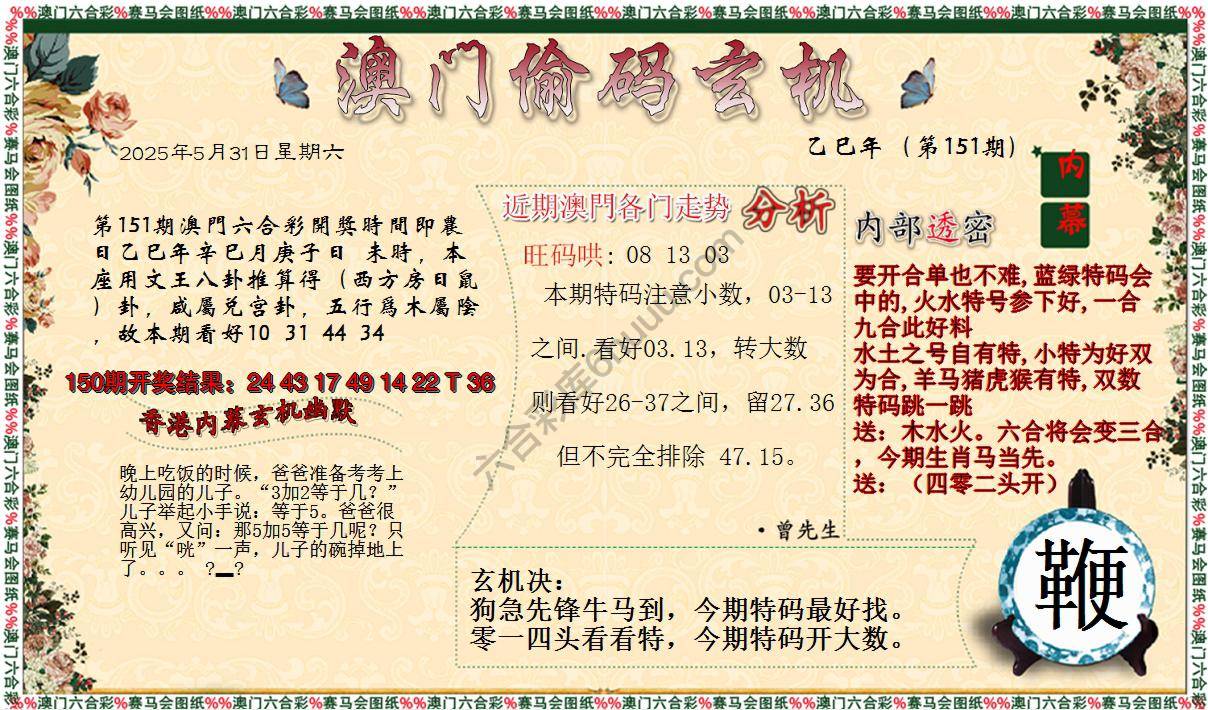 %%澳门六合彩%赛马会图纸%%澳门六合彩%赛马会图纸%%澳门六合彩%赛马会图纸%%澳门六合彩%赛马会图纸%%澳门六合彩%赛马会图纸%%澳门六合彩%赛马会图纸
澳门偷码玄机
2025年5月31日星期六
乙巳年（第151期）
内幕
第151期澳門六合彩開獎時間即農
日乙巳年辛巳月庚子日 未時，本
座用文王八卦推算得（西方房日鼠
）卦，咸屬兑宫卦，五行爲木屬陰
，故本期看好10 31 44 34
150期开奖结果：24 43 17 49 14 22 T 36
香港内幕玄机幽默
晚上吃饭的时候，爸爸准备考考上
幼儿园的儿子。“3加2等于几？”
儿子举起小手说：等于5。爸爸很
高兴，又问：那5加5等于几呢？只
听见“咣”一声，儿子的碗掉地上
了。。。 ?▂?
近期澳門各门走势 分析
旺码哄: 08 13 03
本期特码注意小数，03-13
之间.看好03.13，转大数
则看好26-37之间，留27.36
但不完全排除 47.15。
·曾先生
内部透密
要开合单也不难,蓝绿特码会
中的,火水特号参下好,一合
九合此好料
水土之号自有特,小特为好双
为合,羊马猪虎猴有特,双数
特码跳一跳
送：木水火。六合将会变三合
，今期生肖马当先。
送：（四零二头开）
玄机决：
狗急先锋牛马到，今期特码最好找。
零一四头看看特，今期特码开大数。
鞭
%%澳门六合彩%赛马会图纸%%澳门六合彩%赛马会图纸%%澳门六合彩%赛马会图纸%%澳门六合彩%赛马会图纸%%澳门六合彩%赛马会图纸%%澳门六合彩%赛马会图纸